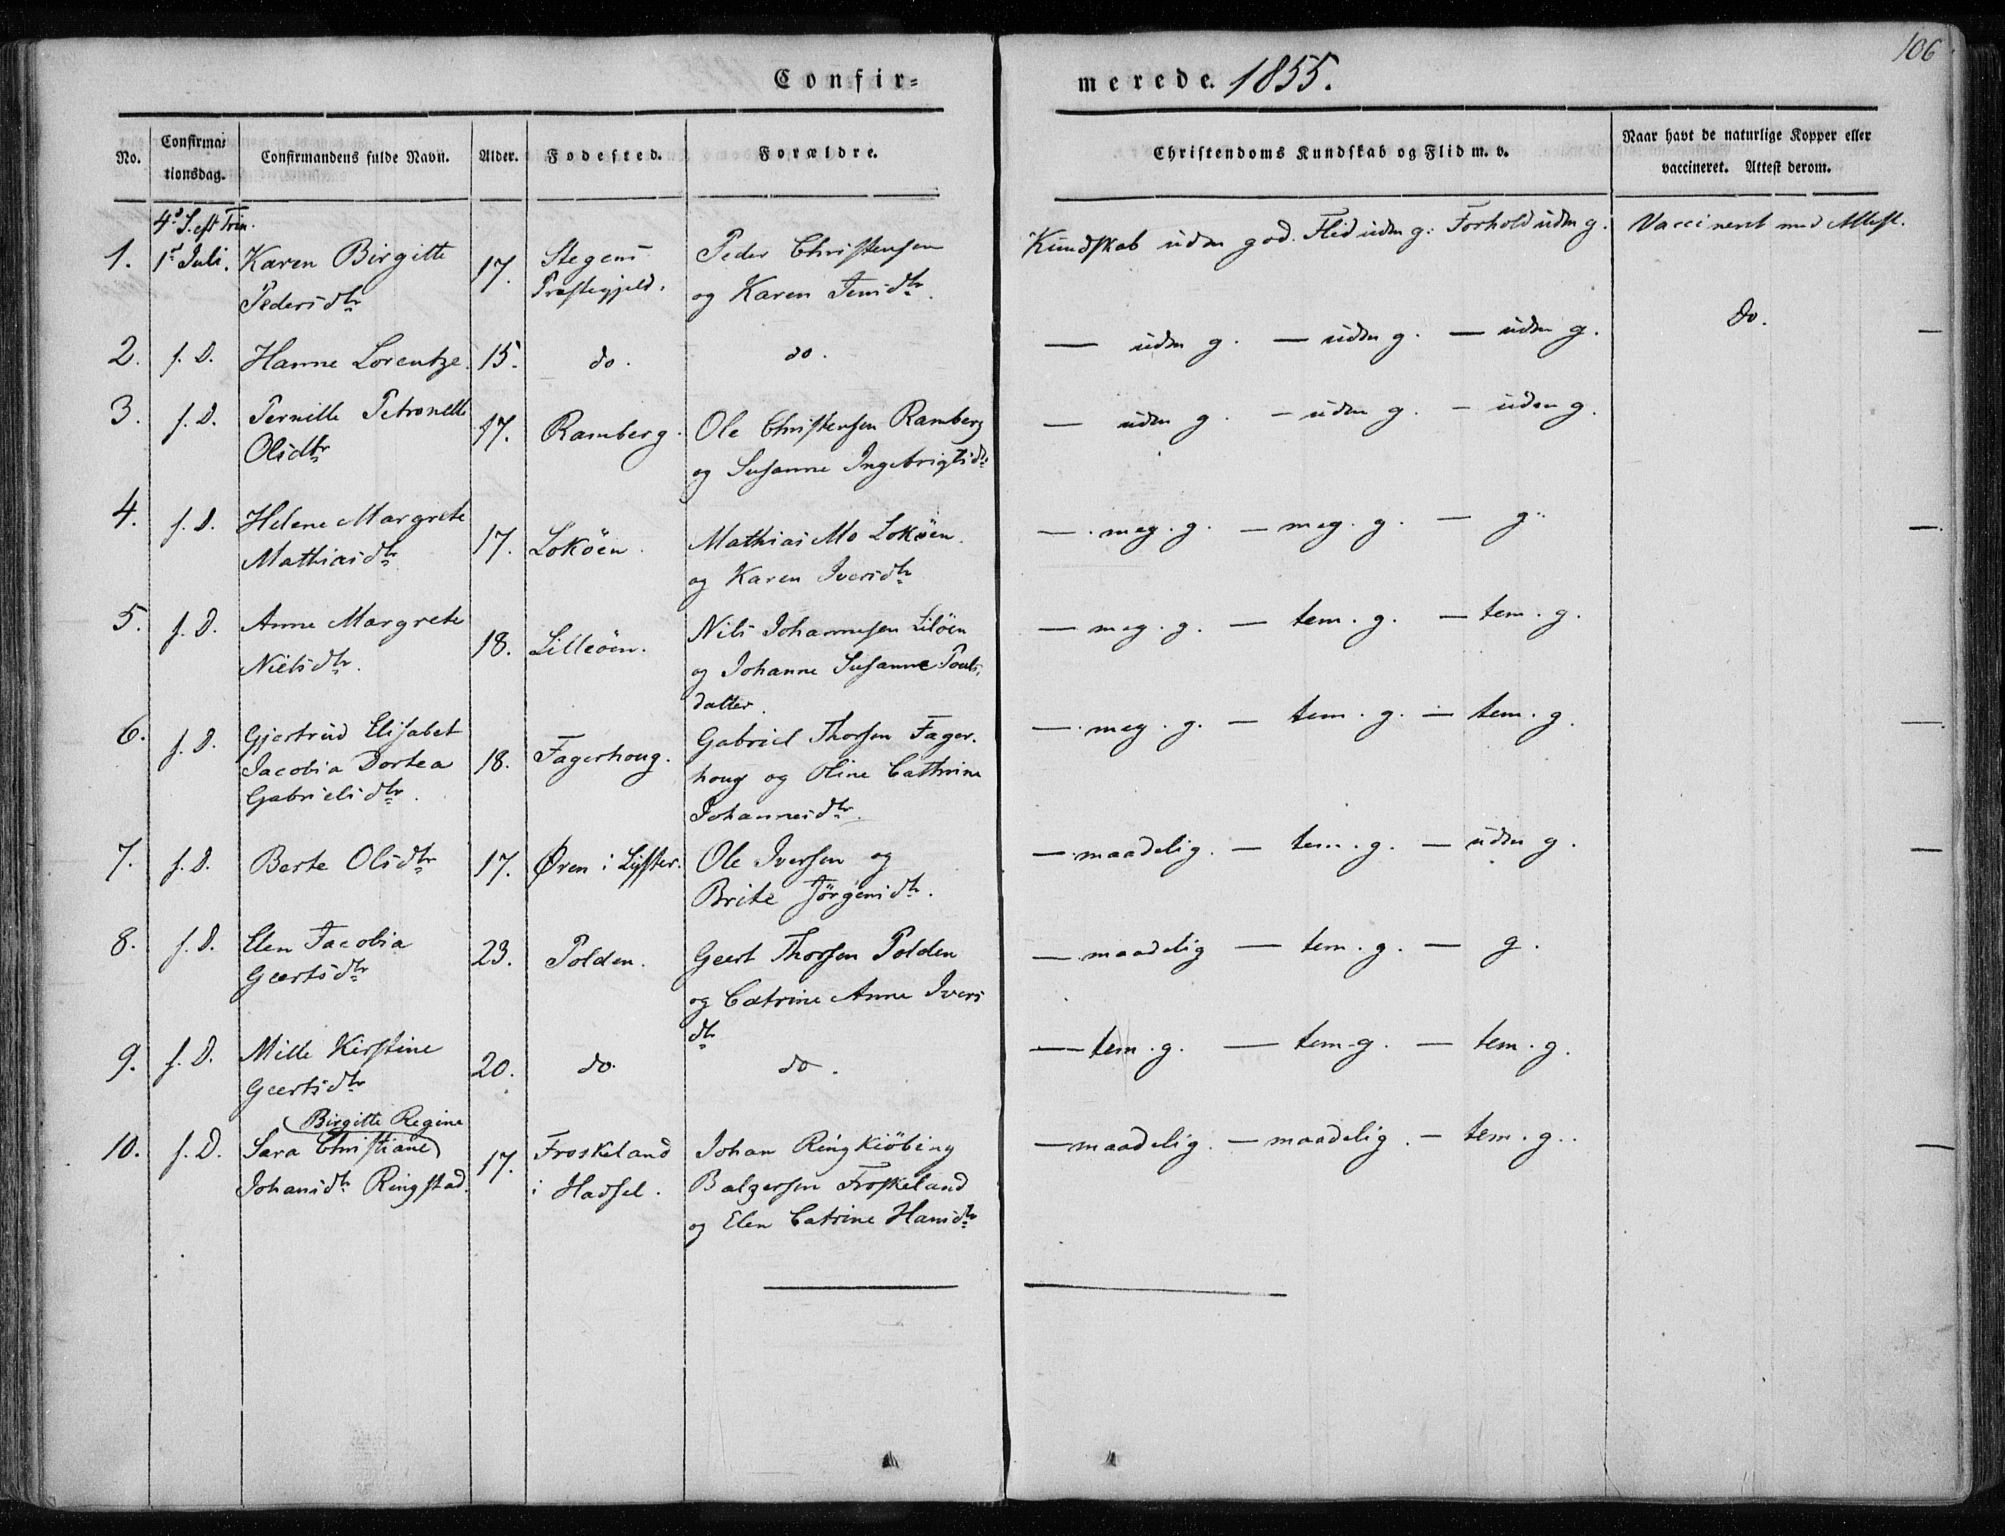 106
Confir-
merede. 1855.
No.
Confirma-
tionsdag.
Confirmandens fulde Navn.
Alder.
Fodested.
Forældre.
Christendoms Kundskab og Flid m. v.
Naar havt de naturlige Kopper eller
vaccineret. Attest derom.
4d S. eft Trin.
1. 1st Juli. Karen Birgitte 17. Stegens Peder Christensen Kundskab uden god. Flid uden g. Forhold uden g. Vaccineret med Attest.
Pedersdtr Præstegjeld. og Karen Jensdtr.
2. f. D. Hanne Lorentze. 15. do. do. — uden g. — uden g. — uden g. do. —
3. f. D. Pernille Petronelle 17. Ramberg. Ole Christensen Ramberg — uden g. — uden g. — uden g.
Olsdtr og Susanne Ingebrigtsdr
4. f. D. Helene Margrete 17. Lokøen. Mathias Mo Lokøen. — meg. g. — meg. g. — g. —
Mathiasdtr og Karen Iversdtr
5. f. D. Anne Margrete 18. Lilleöen. Nils Johannesen Lilöen — meg. g. — tem. g. — tem. g.
Nielsdtr. og Johanne Susanne Pouls-
datter.
6. f. D. Gjertrud Elisabet 18. Fagerhoug. Gabriel Thorsen Fager- — meg. g. — tem. g. — tem. g. —
Jacobia Dortea houg og Oline Cathrine
Gabrielsdtr. Johannesdtr.
7. f. D. Berte Olsdtr 17. Øren i Lyster. Ole Iversen og — maadelig. — tem. g. — uden g. —
Brite Jörgensdtr.
8. f. D. Elen Jacobia 23. Polden. Geert Thorsen Polden — maadelig — tem. g. — g.
Geertsdtr og Catrine Anne Ivers
dtr
9. f. D. Mille Kirstine 20. do. do. — tem. g. — tem. g. — tem. g.
Geertsdtr
Birgitte Regine
10. f. D. Sara Christiane 17. Froskeland Johan Ringkiöbing — maadelig. — maadelig. — tem. g. —
Johansdtr Ringstad. i Hadsel. Balzersen Froskeland
og Elen Catrine Hansdtr